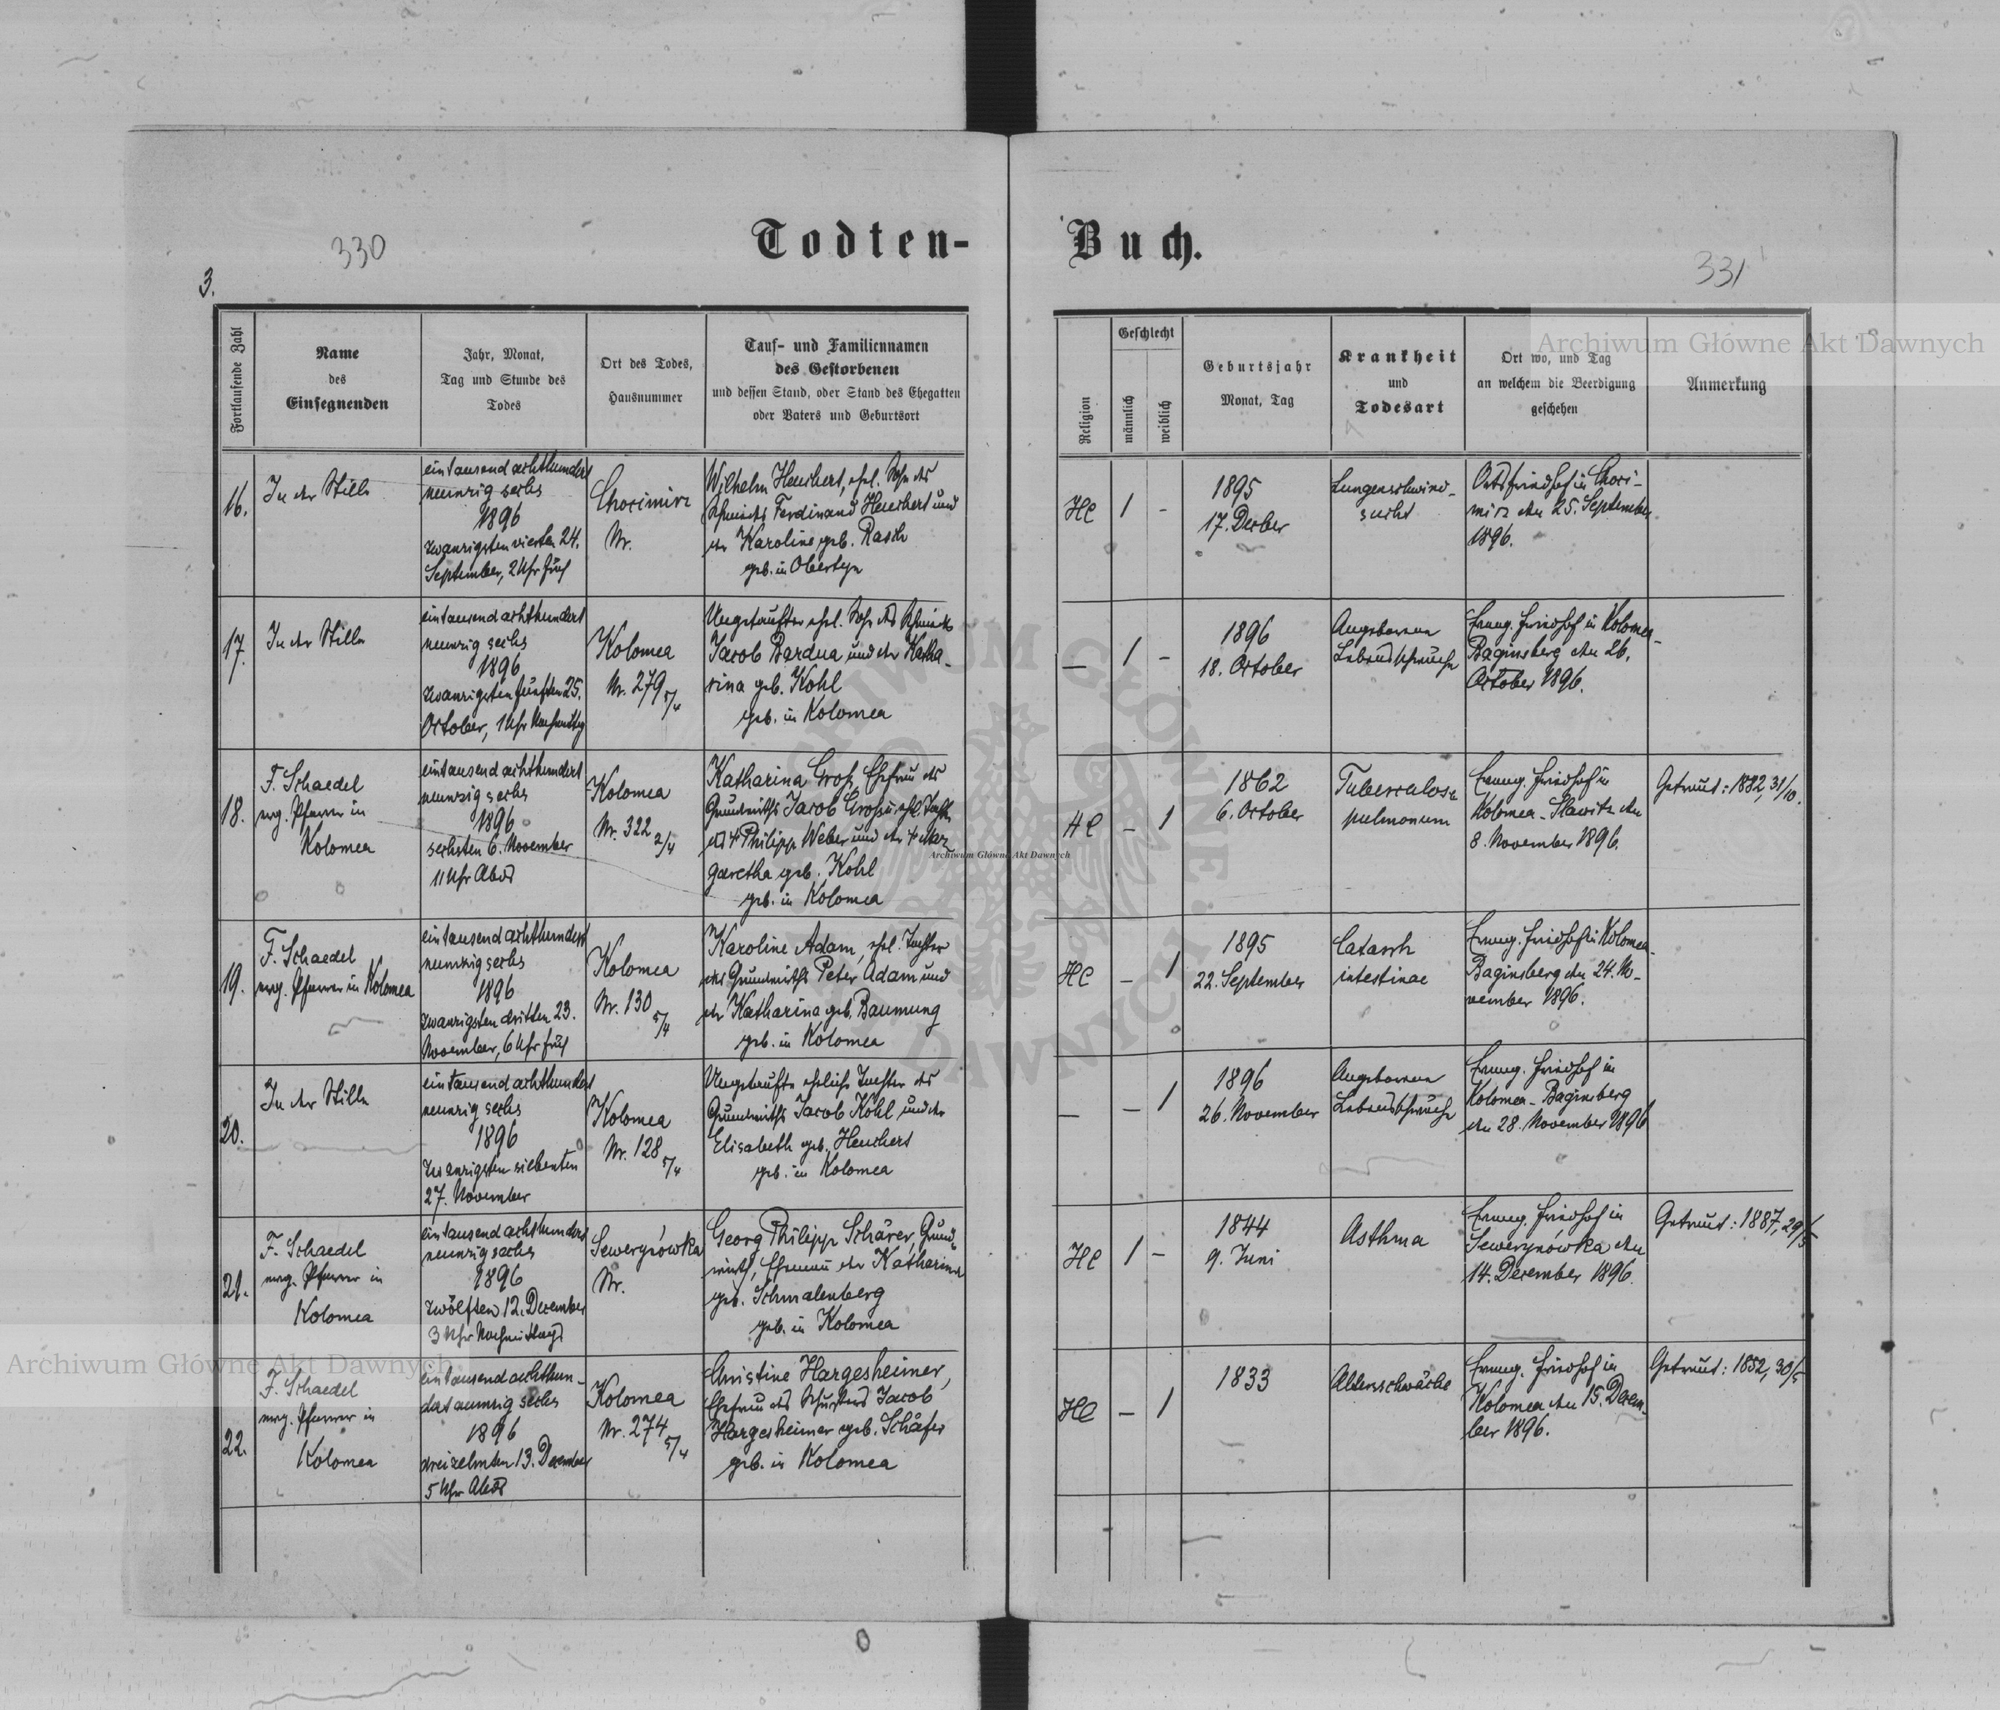 330
Todten-
Buch.
331
3.
Fortlaufende Zahl
Name
des
Einsegnenden
Jahr, Monat,
Tag und Stunde des
Todes
Ort des Todes,
Hausnummer
Tauf- und Familiennamen
des Gestorbenen
und dessen Stand, oder Stand des Ehegatten
oder Vaters und Geburtsort
Religion
Geschlecht
männlich
weiblich
Geburtsjahr
Monat, Tag
Krankheit
und
Todesart
Ort wo, und Tag
an welchem die Beerdigung
geschehen
Anmerkung
16.
In der Stille
eintausend achthundert
neunzig sechs
1896
zwanzigsten vierten 24.
September, 2 Uhr früh
Chocimirz
Nr.
Wilhelm Heuchert, ehel. Sohn des
Schmieds Ferdinand Heuchert und
der Karoline geb. Rasch
geb. in Obertyn
HC
1
-
1895
17. Decber
Lungenschwind-
sucht
Ortsfriedhof in Choci-
mirz den 25. September
1896.
17.
In der Stille
eintausend achthundert
neunzig sechs
1896
zwanzigsten fünften 25.
October, 1 Uhr Nachmittg
Kolomea
Nr. 279 5/4
Ungetaufter ehel. Sohn des Schmieds
Jacob Bardua und der Katha-
rina geb. Kohl
geb. in Kolomea
—
1
-
1896
18. October
Angeborene
Lebensschwäche
Evang. Friedhof in Kolomea-
Baginsberg den 26.
October 1896.
18.
F. Schaedel
evg. Pfarrer in
Kolomea
eintausend achthundert
neunzig sechs
1896
sechsten 6. November
11 Uhr Abds
Kolomea
Nr. 322 2/4
Katharina Groß, Ehefrau des
Grundwirths Jacob Groß u. ehel. Tochter
des + Philipp Weber und der + Mar-
garetha geb. Kohl
geb. in Kolomea
HC
-
1
1862
6. October
Tuberculose
pulmonum
Evang. Friedhof in
Kolomea-Slawitz den
8. November 1896.
Getraut: 1882, 31/10.
19.
F. Schaedel
evg. Pfarrer in Kolomea
eintausend achthundert
neunzig sechs
1896
zwanzigsten dritten 23.
November, 6 Uhr früh
Kolomea
Nr. 130 5/4
Karoline Adam, ehel. Tochter
des Grundwirths Peter Adam und
der Katharina geb. Baumung
geb. in Kolomea
HC
-
1
1895
22. September
Catarrh
intestinae
Evang. Friedhof in Kolomea-
Baginsberg den 24. No-
vember 1896.
20.
In der Stille
eintausend achthundert
neunzig sechs
1896
zwanzigsten siebenten
27. November
Kolomea
Nr. 128 5/4
Ungetaufte eheliche Tochter des
Grundwirths Jacob Kohl und der
Elisabeth geb. Heuchert
geb. in Kolomea
—
-
1
1896
26. November
Angeborene
Lebensschwäche
Evang. Friedhof in
Kolomea-Baginsberg
den 28. November 1896
21.
F. Schaedel
evg. Pfarrer in
Kolomea
eintausend achthundert
neunzig sechs
1896
zwölften 12. December
3 Uhr Nachmittags
Sewerynówka
Nr.
Georg Philipp Schärer, Grund-
wirth, Ehemann der Katharina
geb. Schmalenberg
geb. in Kolomea
HC
1
-
1844
9. Juni
Asthma
Evang. Friedhof in
Sewerynówka den
14. December 1896.
Getraut: 1887, 29/5
22.
F. Schaedel
evg. Pfarrer in
Kolomea
eintausend achthun-
dert neunzig sechs
1896
dreizehnten 13. December
5 Uhr Abds
Kolomea
Nr. 274 5/4
Christine Hargesheimer,
Ehefrau des Schusters Jacob
Hargesheimer geb. Schäfer
geb. in Kolomea
HC
-
1
1833
Altersschwäche
Evang. Friedhof in
Kolomea den 15. Decem-
ber 1896.
Getraut: 1852, 30/5
Archiwum Główne Akt Dawnych
Archiwum Główne Akt Dawnych
Archiwum Główne Akt Dawnych
ARCHIWUM GŁÓWNE AKT DAWNYCH